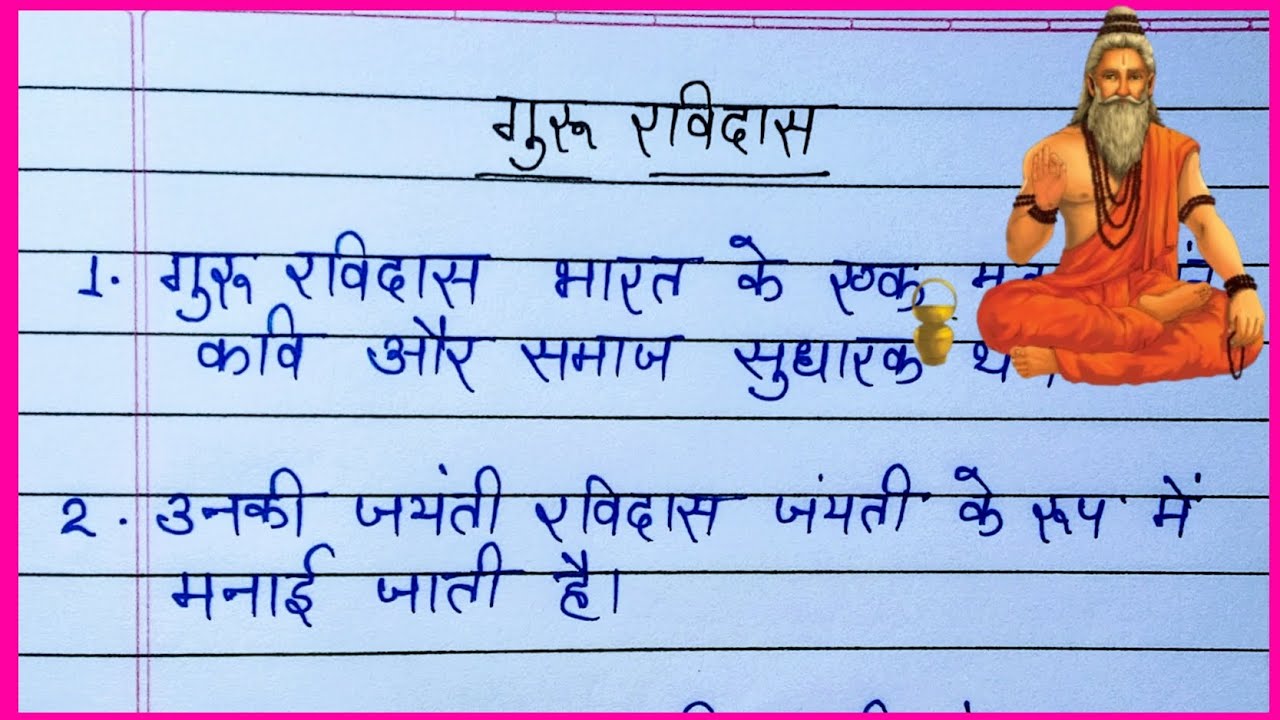 गुरु रविदास
1. गुरु रविदास भारत के एक
कवि और समाज सुधारक
2. उनकी जयंती रविदास जंयती के रूप में
मनाई जाती है।